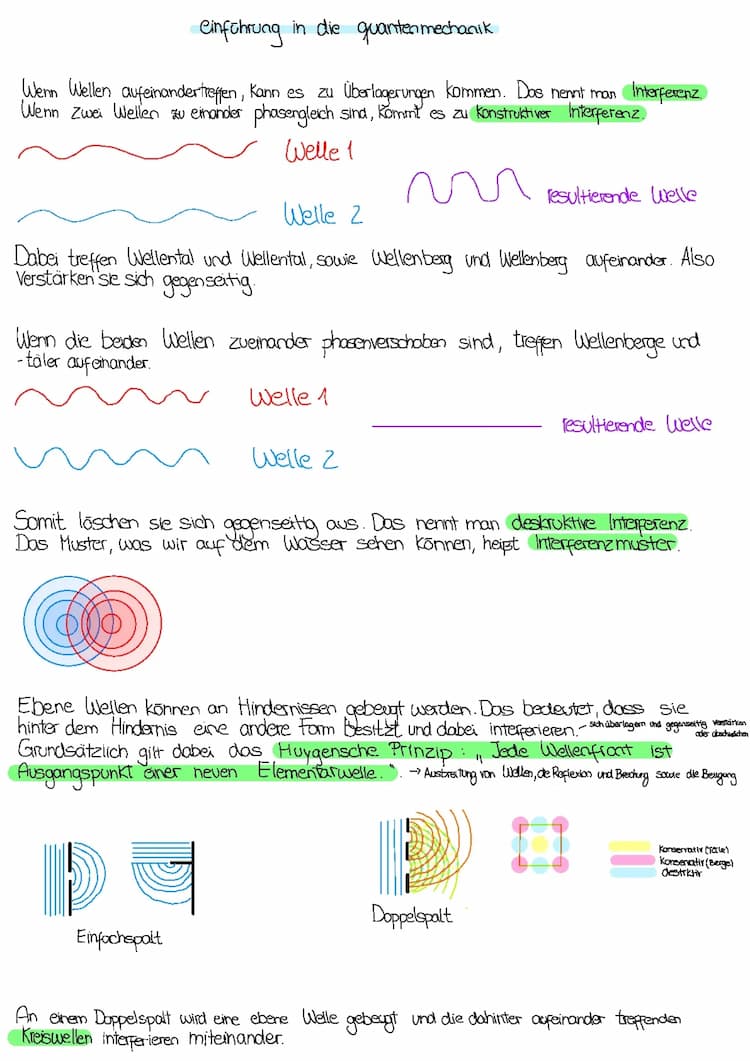 einführung in die quantenmechanik
Wenn Wellen aufeinandertreffen, kann es zu Überlagerungen kommen. Das nennt man Interferenz.
Wenn zwei Wellen zu einander phasengleich sind, kommt es zu konstruktiver Interferenz.
Welle 1
resultierende Welle
Welle 2
Dabei treffen Wellental und Wellental, sowie Wellenberg und Wellenberg aufeinander. Also
verstärken sie sich gegenseitig.
Wenn die beiden Wellen zueinander phasenverschoben sind, treffen Wellenberge und
-täler aufeinander.
Welle 1
resultierende Welle
Welle 2
Somit löschen sie sich gegenseitig aus. Das nennt man destruktive Interferenz.
Das Muster, was wir auf dem Wasser sehen können, heißt Interferenzmuster.
Ebene Wellen können an Hindernissen gebeugt werden. Das bedeutet, dass sie
hinter dem Hindernis eine andere Form besitzt und dabei interferieren. - sich überlagern und gegenseitig verstärken
oder abschwächen
Grundsätzlich gilt dabei das Huygensche Prinzip: „Jede Wellenfront ist
Ausgangspunkt einer neuen Elementarwelle.". → Ausbreitung von Wellen, die Reflexion und Brechung sowie die Beugung
Konservativ (Täler)
Konservativ (Berge)
destruktiv
Einfachspalt
Doppelspalt
An einem Doppelspalt wird eine ebene Welle gebeugt und die dahinter aufeinander treffenden
Kreiswellen interferieren miteinander.